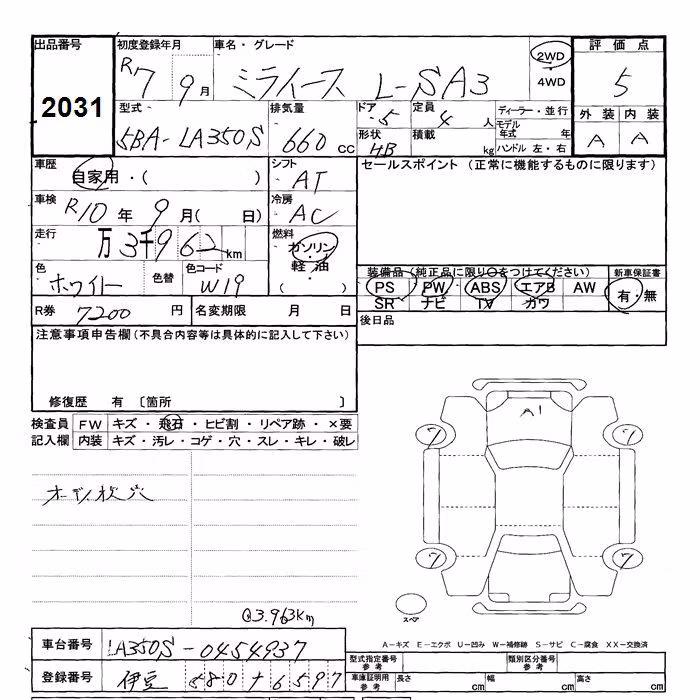 出品番号 初度登録年月 車名・グレード 2WD 評価点
2031 R7 9月 ミライース L-SA3 4WD 5
型式 排気量 ドア 定員 ディーラー・並行 外装 内装
5BA-LA350S 660cc 5 4人 モデル年式 年 A A
形状 積載 kg ハンドル 左・右
HB
車歴 シフト セールスポイント (正常に機能するものに限ります)
自家用・( ) AT
車検 冷房
R10年 9月( 日) AC
走行 燃料
万3千962km ガソリン
軽油
装備品(純正品に限り○をつけてください) 新車保証書
色 色替 色コード ( )
ホワイト W19
PS PW ABS エアB AW 有・無
SR ナビ TV カワ
R券 7200円 名変期限 月 日 後日品
注意事項申告欄(不具合内容等は具体的に記入して下さい)
修復歴 有 [箇所 ]
検査員 FW キズ・飛石・ヒビ割・リペア跡・×要
記入欄 内装 キズ・汚レ・コゲ・穴・スレ・キレ・破レ
A1
7 7
穴
7 7
スペア
3.963km
A-キズ E-エクボ U-凹み W-補修跡 S-サビ C-腐食 XX-交換済
車台番号 LA350S-0454937
型式指定番号 参考 類別区分番号 参考
登録番号 伊豆 580 + 6597
車庫証明用 参考 長さ cm 幅 cm 高さ cm